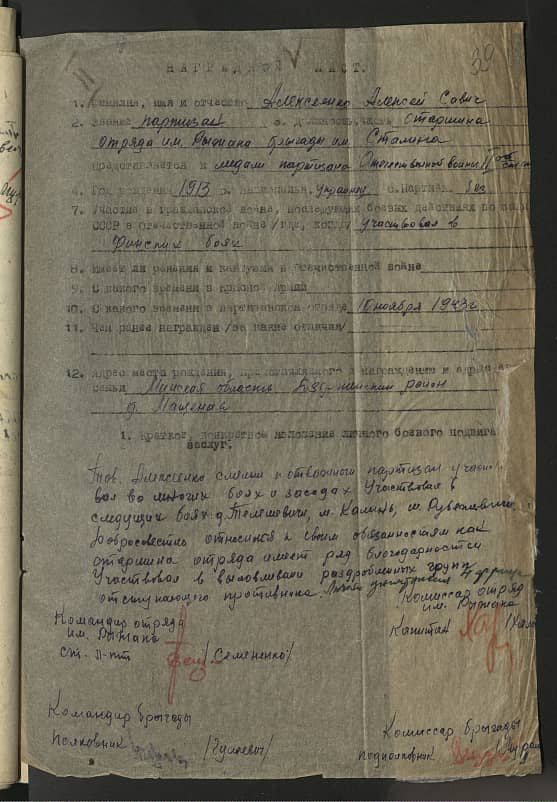 39
НАГРАДНОЙ ЛИСТ.
1. Фамилия, имя и отчество Алексеенко Алексей Савич
2. Звание партизан 3. Должность, часть старшина
отряда им. Рыжака брыгады им. Сталина
представляется к медали партизана Отечественной войны II ой степ
4. Год рождения 1913 5. Национальн. украинец 6. Партийн. без
7. Участие в гражданской войне, последующих боевых действиях по
СССР в отечественной войне /где, когда/ участвовал в
Финских боях
8. Имеет ли ранения и контузии в отечественной войне
9. С какого времени в красной армии
10. С какого времени в партизанском отряде 10 ноября 1943 г.
11. Чем ранее награжден /за какие отличия/
12. Адрес места рождения, представляемого к награждению и адрес
семьи Минская область район
д.
1. Краткое, конкретное изложение личного боевого подвига
заслуг.
Тов. Алексеенко смелый и отважный партизан участво
вал во многих боях и засадах Участвовал в
следущих боях д. Телешевичи, м.
Добросовестно относился к своим обязанностям как
старшина отряда имеет ряд благодарностей
Участвовал в вылавливани раздробленых групп
отступающего противника. Лично 4
Командир отряда
им. Рыжака
ст. л-нт /Семененко/
Комиссар отряд
им. Рыжака
Капитан
Командир брыгады
Полковник /Гулевич/
Комиссар брыгады
подполковник